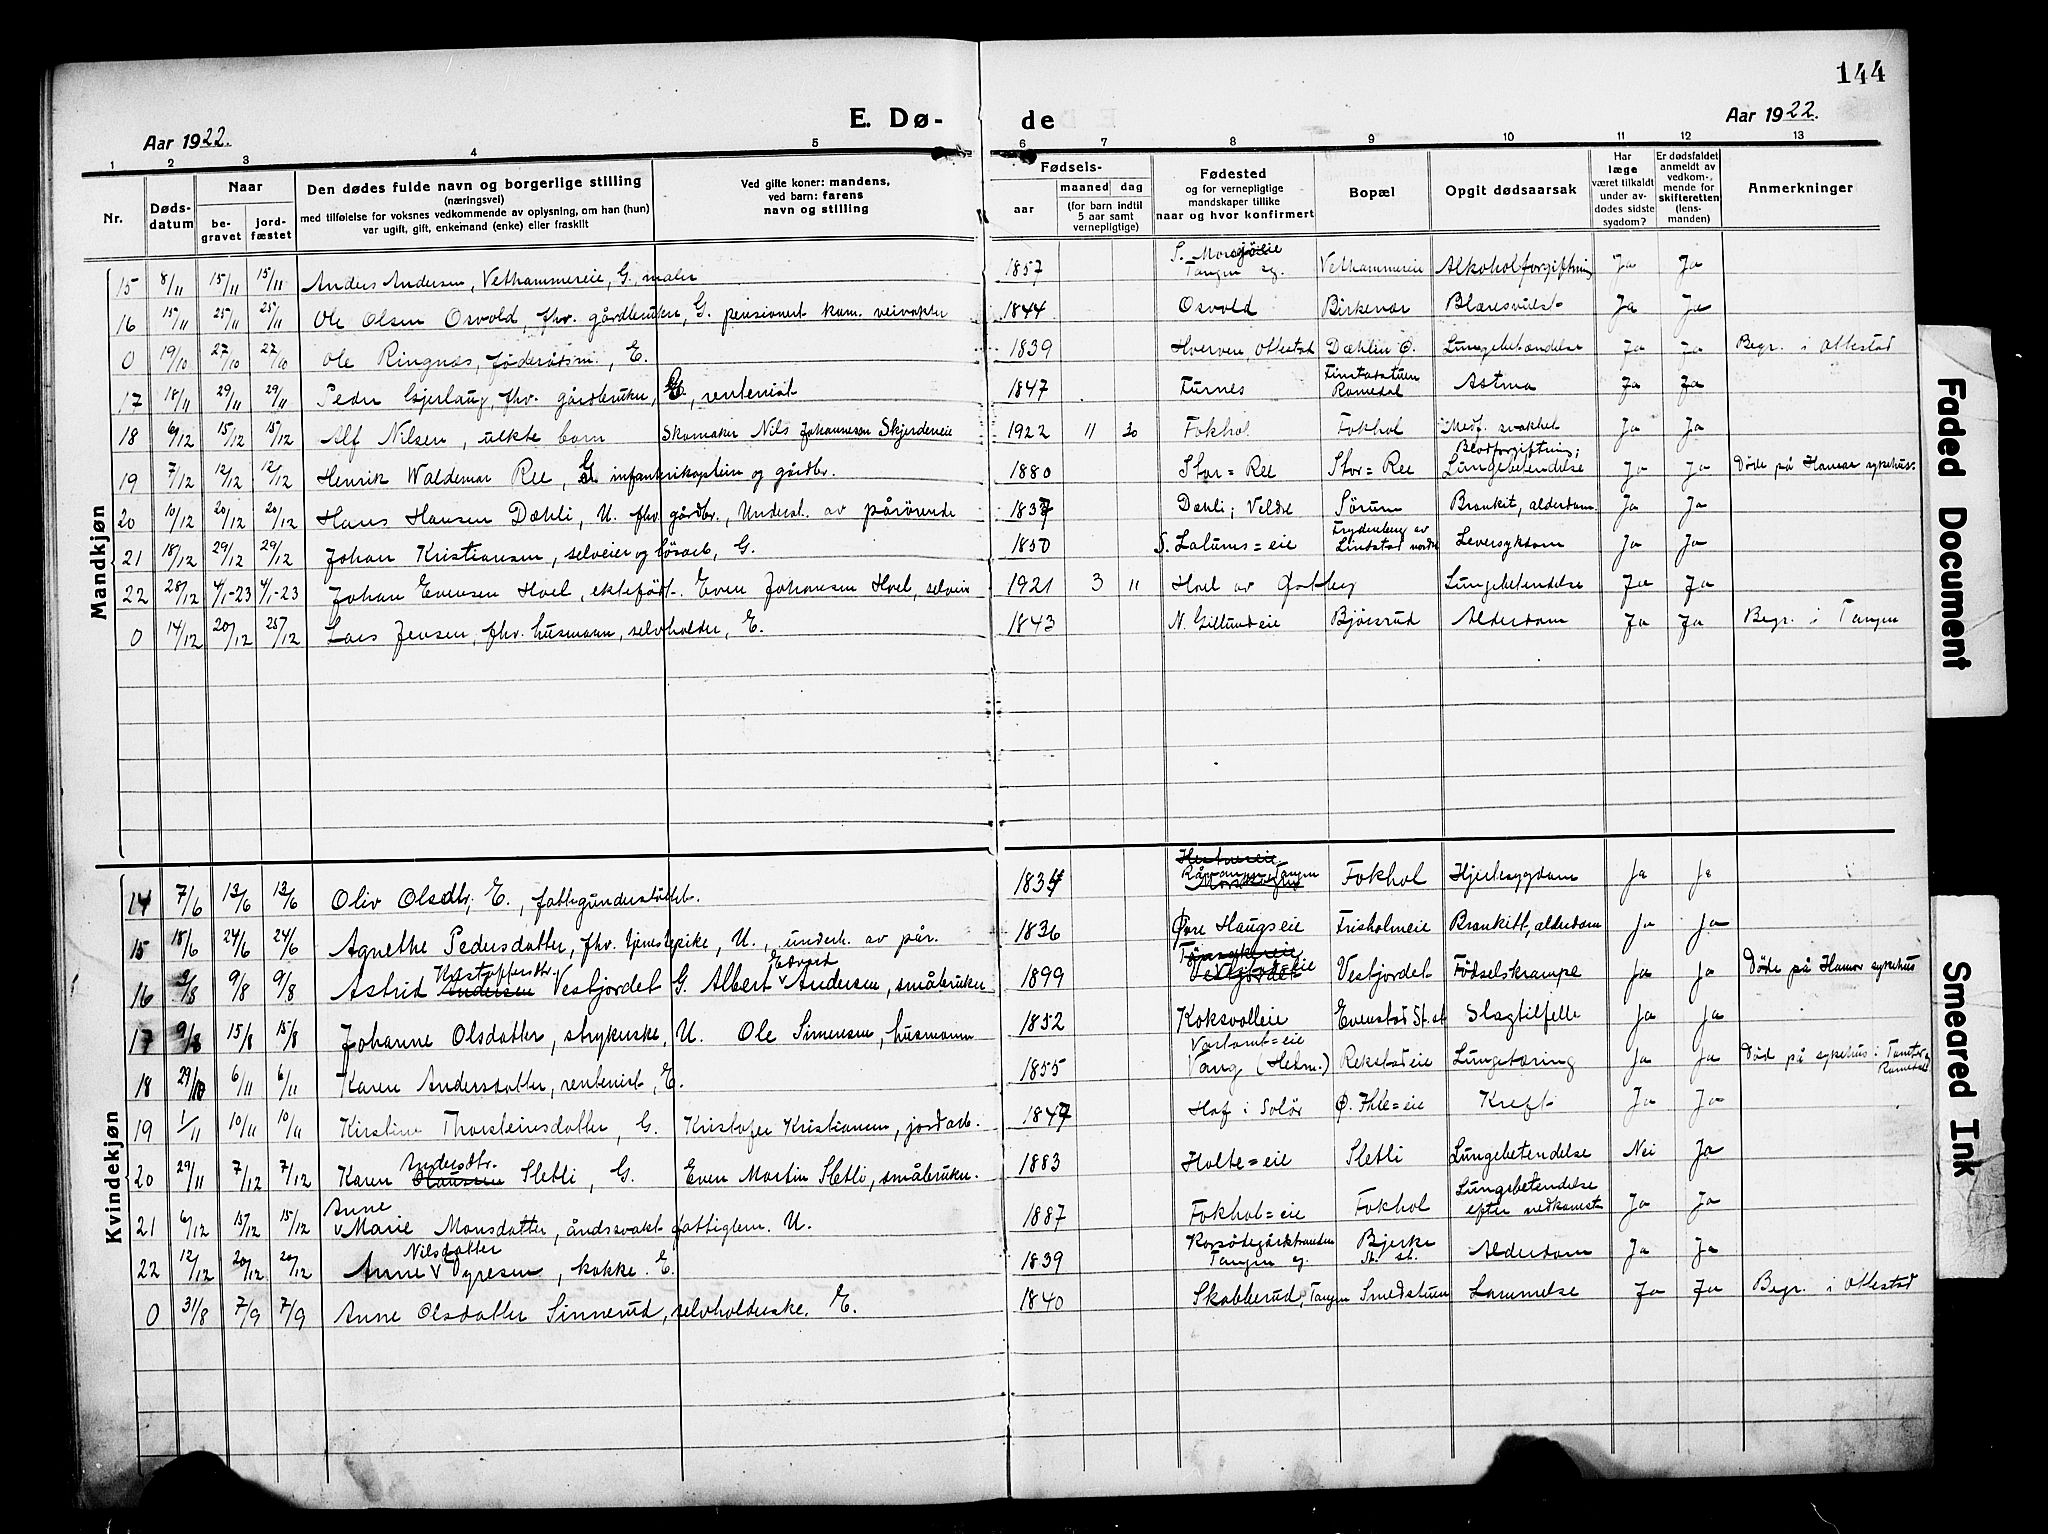 144
E. Dø-
de
Aar 1922.
Aar 1922.
1 2 3 4 5 6 7 8 9 10 11 12 13
Nr. Døds-datum Naar be-gravet jord-fæstet
Den dødes fulde navn og borgerlige stilling
(næringsvei)
med tilføielse for voksnes vedkommende av oplysning, om han (hun)
var ugift, gift, enkemand (enke) eller fraskilt
Ved gifte koner: mandens,
ved barn: farens
navn og stilling
Fødsels-
aar maaned dag
(for barn indtil
5 aar samt
vernepligtige)
Fødested
og for vernepligtige
mandskaper tillike
naar og hvor konfirmert
Bopæl
Opgit dødsaarsak
Har
læge
været tilkaldt
under av-
dødes sidste
sygdom?
Er dødsfaldet
anmeldt av
vedkom-
mende for
skifteretten
(lens-
manden)
Anmerkninger
Mandkjøn
15 8/11 15/11 15/11 Anders Andersen, Vethammereie, G., maler 1857 Tangen sg. Vethammereie Alkoholforgiftning Ja Ja
16 15/11 25/11 25/11 Ole Olsen Osvold, fhv. gårdbruker, G. pensionert kom. veivokter 1844 Osvold Birkevar Blæresvulst Ja Ja
0 19/10 27/10 27/10 Ole Ringnæs, føderådsm., E. 1839 Ottestad Dæhlin Ø. Lungebetændelse Ja Ja Begr. i Ottestad
17 18/11 29/11 29/11 Peder Gjerlaug, fhv. gårdbruker, E., rentenist 1847 Furnes Finstadstuen Romedal Astma Ja Ja
18 6/12 15/12 15/12 Alf Nilsen, uekte barn Skomaker Nils Johannesen Skjerdereie 1922 11 30 Fokhol Fokhol Medf. svakhet Ja Ja
19 7/12 12/12 12/12 Henrik Waldemar Ree, G. infanterikaptein og gårdbr. 1880 Stor=Ree Stor=Ree Blodforgiftning, Lungebetendelse Ja Ja Døde på Hamar sykehus.
20 10/12 20/12 20/12 Hans Hansen Dæhli, U. fhv. gårdbr., Underst. av pårørende 1837 Dæhli, Veldre Sørum Bronkit, alderdom. Ja Ja
21 18/12 29/12 29/12 Johan Kristiansen, selveier og løsarb, G. 1850 S. Lalums=eie Frydenberg av Lindstad nordre Leversykdom Ja Ja
22 28/12 4/1-23 4/1-23 Johan Evensen Hoel, ektefødt. Even Johansen Hoel, selveier 1921 3 11 Hoel av Østby Lungebetendelse Ja Ja
0 14/12 20/12 25/12 Lars Jensen, fhv. husmann, selvholder, E. 1843 N. Gillundeie Bjørsrud Alderdom Ja Ja Begr. i Tangen
Kvindekjøn
14 7/6 13/6 13/6 Oliv Olsdtr, E., fattigunderstøttet. 1834 Tangen Fokhol Hjertesygdom Ja Ja
15 18/6 24/6 24/6 Agnethe Pedersdatter, fhv. tjenestepike, U., underh. av pår. 1836 Øvre Haugseie Frisholmeie Bronkitt, alderdom Ja Ja
16 3/8 9/8 9/8 Astrid Kristoffersdtr. Andersen Vestjordet G. Albert Edvard Andersen, småbruker 1899 Vestjordet Fødselskrampe Ja Ja Døde på Hamar sykehus
17 9/8 15/8 15/8 Johanne Olsdatter, strykerske, U. Ole Simensen, husmann 1852 Koksvolleie Evenstad St. st. Slagtilfelle Ja Ja
18 29/10 6/11 6/11 Karen Andersdatter, rentenist, E. 1855 Vang (Hedm.) Rekstadeie Lungetæring Ja Ja Død på sykehus i Romedal
19 1/11 10/11 10/11 Kirstine Thorsteinsdatter, G. Kristofer Kristiansen, jordarb. 1847 Hof i Solør Ø. Ihle=eie Kreft Ja Ja
20 29/11 7/12 7/12 Karen Andersdtr. Sletli, G. Even Martin Sletli, småbruker. 1883 Holte=eie Sletli Lungebetendelse Nei Ja
21 6/12 15/12 15/12 Anne Marie Monsdatter, åndssvakt fattiglem. U. 1887 Fokhol=eie Fokhol Lungebetendelse efter nedkomst Ja Ja
22 12/12 20/12 20/12 Anne Nilsdatter Syresen, kokke. E. 1839 Tangen sg. Bjerke St. st. Alderdom Ja Ja
0 31/8 7/9 7/9 Anne Olsdatter Sinnerud, selvholderske. E. 1840 Skabberud, Tangen Smedstuen Lammelse Ja Ja Begr. i Ottestad
Faded Document
Smeared Ink